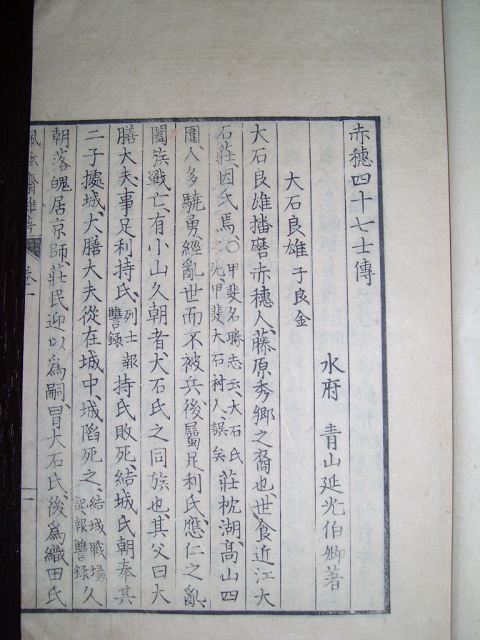 赤穗四十七士傳
水府 青山延光伯卿著
大石良雄 子良金
大石良雄播磨赤穗人、藤原秀鄉之裔也、世食近江大
石莊、因氏焉、〇甲斐名勝志云、大石氏之先甲斐大石村人、誤矣、莊枕湖、高山四
圍、人多驍勇、經亂世而不被兵、後屬足利氏、應仁之亂、
闔族戰亡、有小山久朝者、大石氏之同族也、其父曰大
膳大夫、事足利持氏、烈士報讐錄持氏敗死、結城氏朝奉其
二子據城、大膳大夫從在城中、城陷死之、結城戰場記報讐錄久
朝落魄居京師、莊民迎以爲嗣、冒大石氏、後爲織田氏
卷一